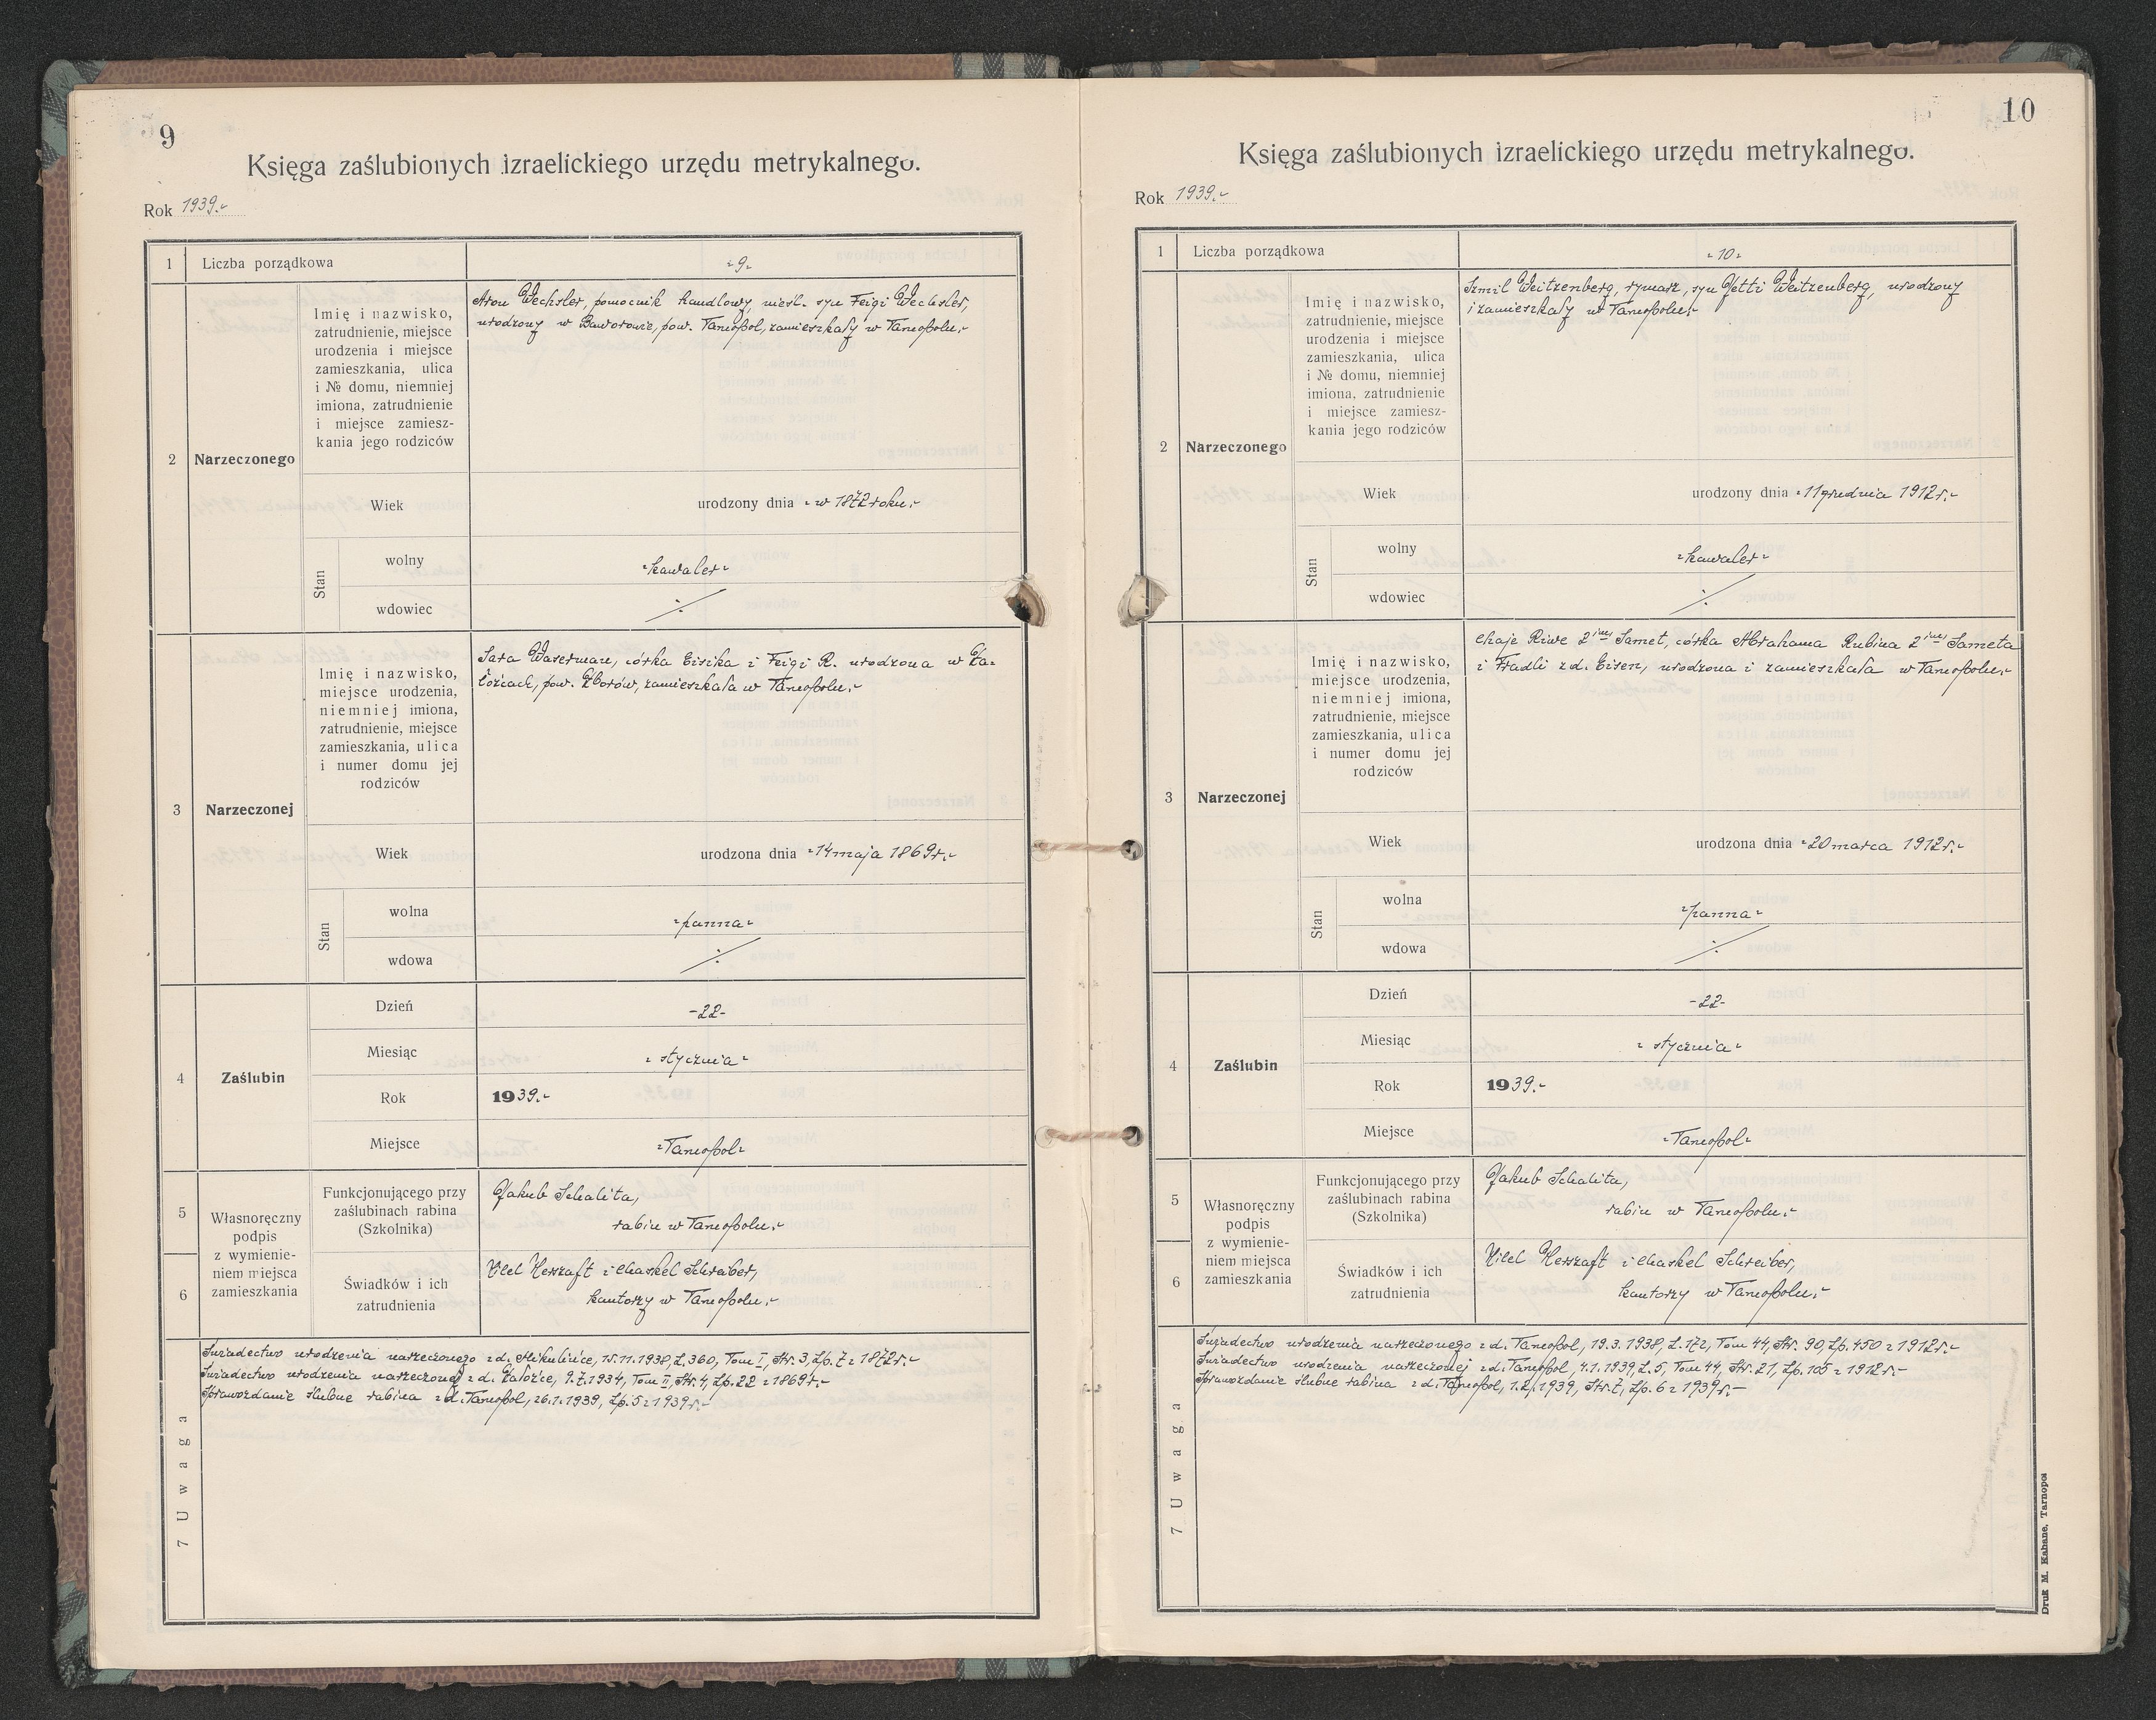 9
Księga zaślubionych izraelickiego urzędu metrykalnego.
Rok 1939.-
1 Liczba porządkowa -9-
2 Narzeczonego
Imię i nazwisko,
zatrudnienie, miejsce
urodzenia i miejsce
zamieszkania, ulica
i № domu, niemniej
imiona, zatrudnienie
i miejsce zamiesz-
kania jego rodziców
Aron Wechsler, pomocnik handlowy, nieśl. syn Feigi Wechsler,
urodzony w Baworowie, pow. Tarnopol, zamieszkały w Tarnopolu.-
Wiek urodzony dnia - w 1872 roku.-
Stan
wolny -kawaler-
wdowiec ⁒
3 Narzeczonej
Imię i nazwisko,
miejsce urodzenia,
niemniej imiona,
zatrudnienie, miejsce
zamieszkania, ulica
i numer domu jej
rodziców
Sara Waserman, córka Eisika i Feigi R. urodzona w Za-
łoźcach, pow. Zborów, zamieszkała w Tarnopolu.-
Wiek urodzona dnia -14 maja 1869 r.-
Stan
wolna -panna-
wdowa ⁒
4 Zaślubin
Dzień -22-
Miesiąc - stycznia -
Rok 1939.-
Miejsce -Tarnopol-
5
6
Własnoręczny
podpis
z wymienie-
niem miejsca
zamieszkania
Funkcjonującego przy
zaślubinach rabina
(Szkolnika)
Jakub Schalita,
rabin w Tarnopolu.-
Świadków i ich
zatrudnienia
Herszaft i Chaskel Schreiber,
kantorzy w Tarnopolu.-
7 Uwaga
Świadectwo urodzenia narzeczonego z d. Mikulińce, 15.11.1938, L.360, Tom I, Str. 3, Lp. 7 z 1872 r.-
Świadectwo urodzenia narzeczonej z d. Załoźce, 9.7.1934, Tom II, Str. 4, Lp. 22 z 1869 r.-
Sprawozdanie ślubne rabina z d. Tarnopol, 26.1.1939, Lp. 5 z 1939 r.-
10
Księga zaślubionych izraelickiego urzędu metrykalnego.
Rok 1939.-
1 Liczba porządkowa -10-
2 Narzeczonego
Imię i nazwisko,
zatrudnienie, miejsce
urodzenia i miejsce
zamieszkania, ulica
i № domu, niemniej
imiona, zatrudnienie
i miejsce zamiesz-
kania jego rodziców
Szmil Weitzenberg, rymarz, syn Jetti Weitzenberg, urodzony
i zamieszkały w Tarnopolu.-
Wiek urodzony dnia -11 grudnia 1912 r.-
Stan
wolny -kawaler-
wdowiec ⁒
3 Narzeczonej
Imię i nazwisko,
miejsce urodzenia,
niemniej imiona,
zatrudnienie, miejsce
zamieszkania, ulica
i numer domu jej
rodziców
Chaje Riwe 2im Samet, córka Abrahama Rubina 2im Sameta
i Fradli z d. Eisen, urodzona i zamieszkała w Tarnopolu.-
Wiek urodzona dnia -20 marca 1912 r.-
Stan
wolna -panna-
wdowa ⁒
4 Zaślubin
Dzień -22-
Miesiąc - stycznia-
Rok 1939.-
Miejsce -Tarnopol-
5
6
Własnoręczny
podpis
z wymienie-
niem miejsca
zamieszkania
Funkcjonującego przy
zaślubinach rabina
(Szkolnika)
Jakub Schalita,
rabin w Tarnopolu.-
Świadków i ich
zatrudnienia
Herszaft i Chaskel Schreiber,
kantorzy w Tarnopolu.-
7 Uwaga
Świadectwo urodzenia narzeczonego z d. Tarnopol, 19.3.1938, L.172, Tom 44, Str. 90, Lp. 450 z 1912 r.-
Świadectwo urodzenia narzeczonej z d. Tarnopol, 4.1.1939, L.5, Tom 44, Str. 21, Lp. 105 z 1912 r.-
Sprawozdanie ślubne rabina z d. Tarnopol, 1.2.1939, Str. 7, Lp. 6 z 1939 r.-
Druk M. Kahane, Tarnopol